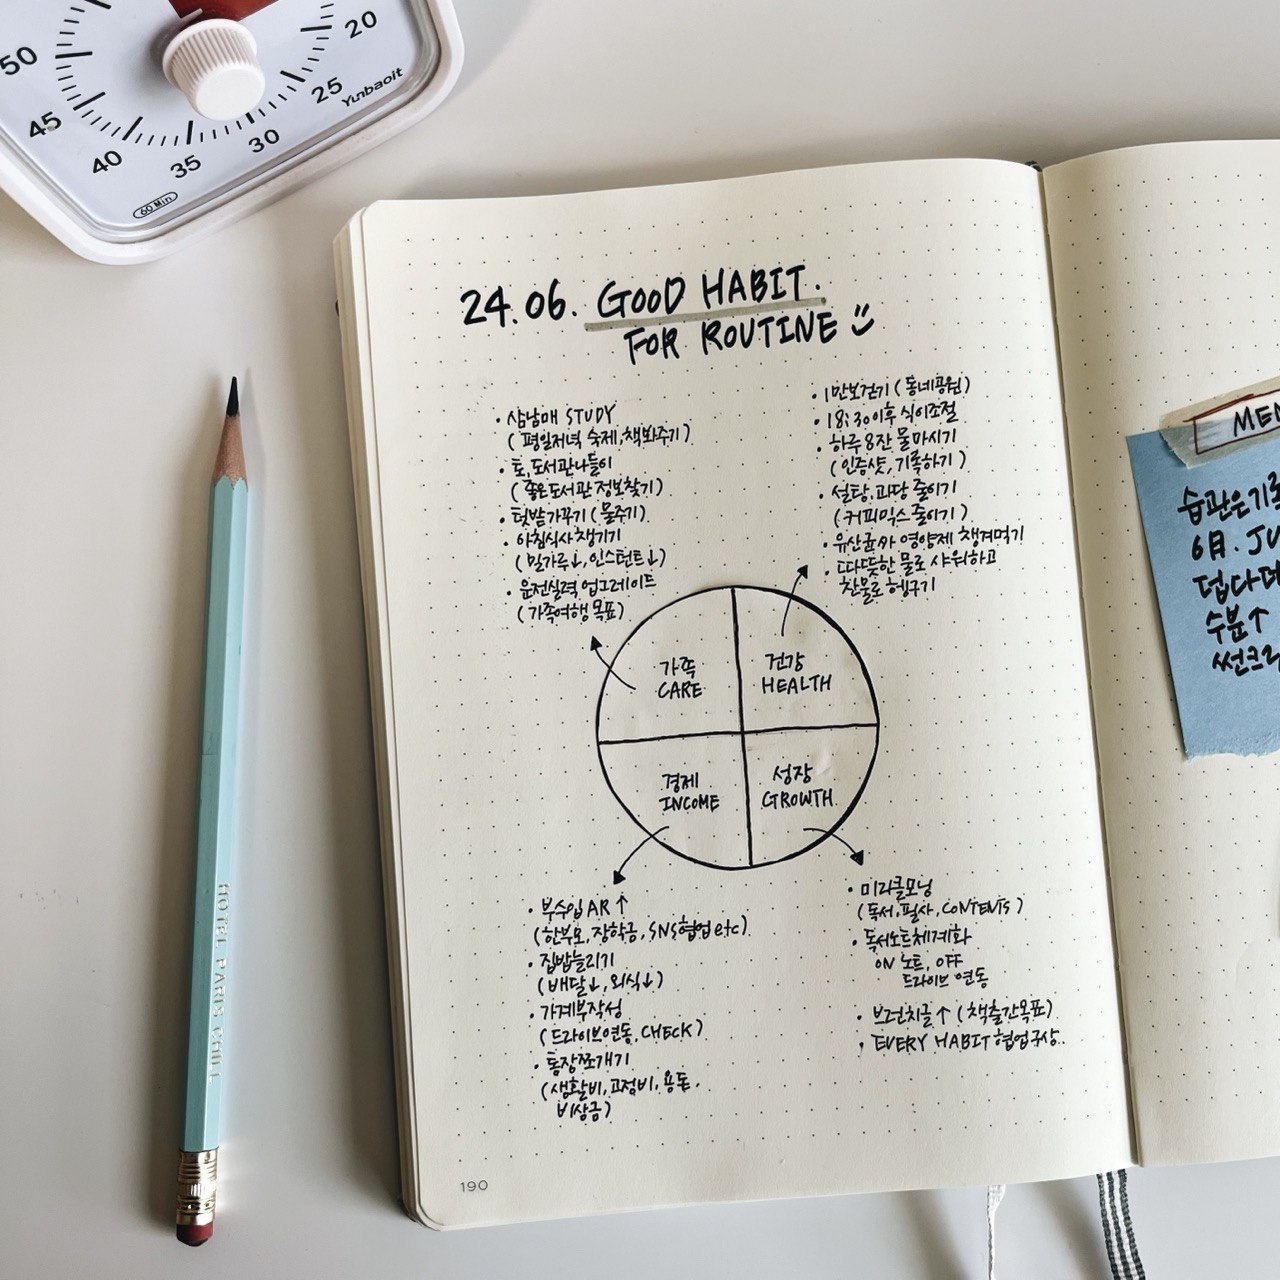 50
45
40
35
30
25
20
Yunbaoit
60 Min
24.06. GOOD HABIT.
FOR ROUTINE
• 삼남매 STUDY
(평일저녁 숙제, 책봐주기)
• 토, 도서관나들이
(좋은도서관 정보찾기)
• 텃밭가꾸기 (물주기)
• 아침식사 챙기기
(밀가루↓, 인스턴트↓)
• 운전실력 업그레이드
(가족여행 목표)
• 1만보걷기 (동네공원)
• 18:30이후 식이조절
• 하루 8잔 물마시기
(인증샷, 기록하기)
• 설탕, 과당 줄이기
(커피믹스 줄이기)
• 유산균과 영양제 챙겨먹기
• 따뜻한 물로 샤워하고
찬물로 헹구기
가족
CARE
건강
HEALTH
경제
INCOME
성장
GROWTH
• 부수입 AR ↑
(한부모, 장학금, SNS협업 etc)
• 집밥늘리기
(배달↓, 외식↓)
• 가계부작성
(드라이브연동, CHECK)
• 통장쪼개기
(생활비, 고정비, 용돈,
비상금)
• 미라클모닝
(독서, 필사, CONTENTS)
• 독서노트체계화
ON 노트, OFF
드라이브 연동
• 브런치글↑ (책출간목표)
• EVERY HABIT 협업구상.
190
HOTEL PARIS CHILL
MEM
습관은기록
6月. JU
덥다더
수분↑
썬크